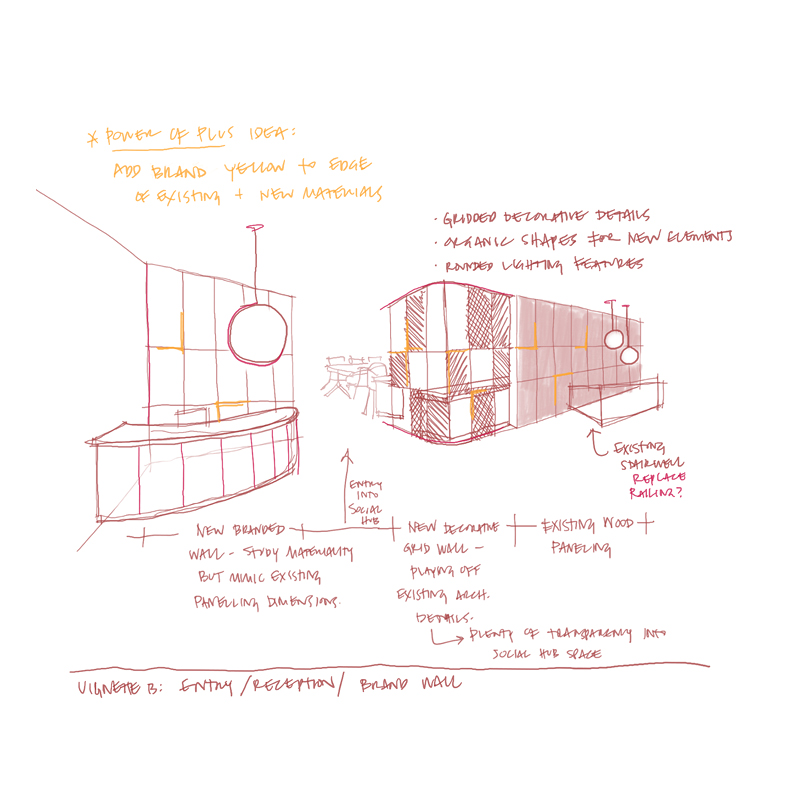 * POWER OF PLUS IDEA:
ADD BRAND YELLOW TO EDGE
OF EXISTING + NEW MATERIALS
· GRIDDED DECORATIVE DETAILS
· ORGANIC SHAPES FOR NEW ELEMENTS
· ROUNDED LIGHTING FEATURES
EXISTING
STAIRWELL
REPLACE
RAILING?
ENTRY
INTO
SOCIAL
HUB
NEW BRANDED
WALL - STUDY MATERIALITY
BUT MIMIC EXISTING
PANELLING DIMENSIONS.
NEW DECORATIVE
GRID WALL -
PLAYING OFF
EXISTING ARCH.
DETAILS.
PLENTY OF TRANSPARENCY INTO
SOCIAL HUB SPACE
EXISTING WOOD
PANELING
VIGNETTE B: ENTRY / RECEPTION / BRAND WALL